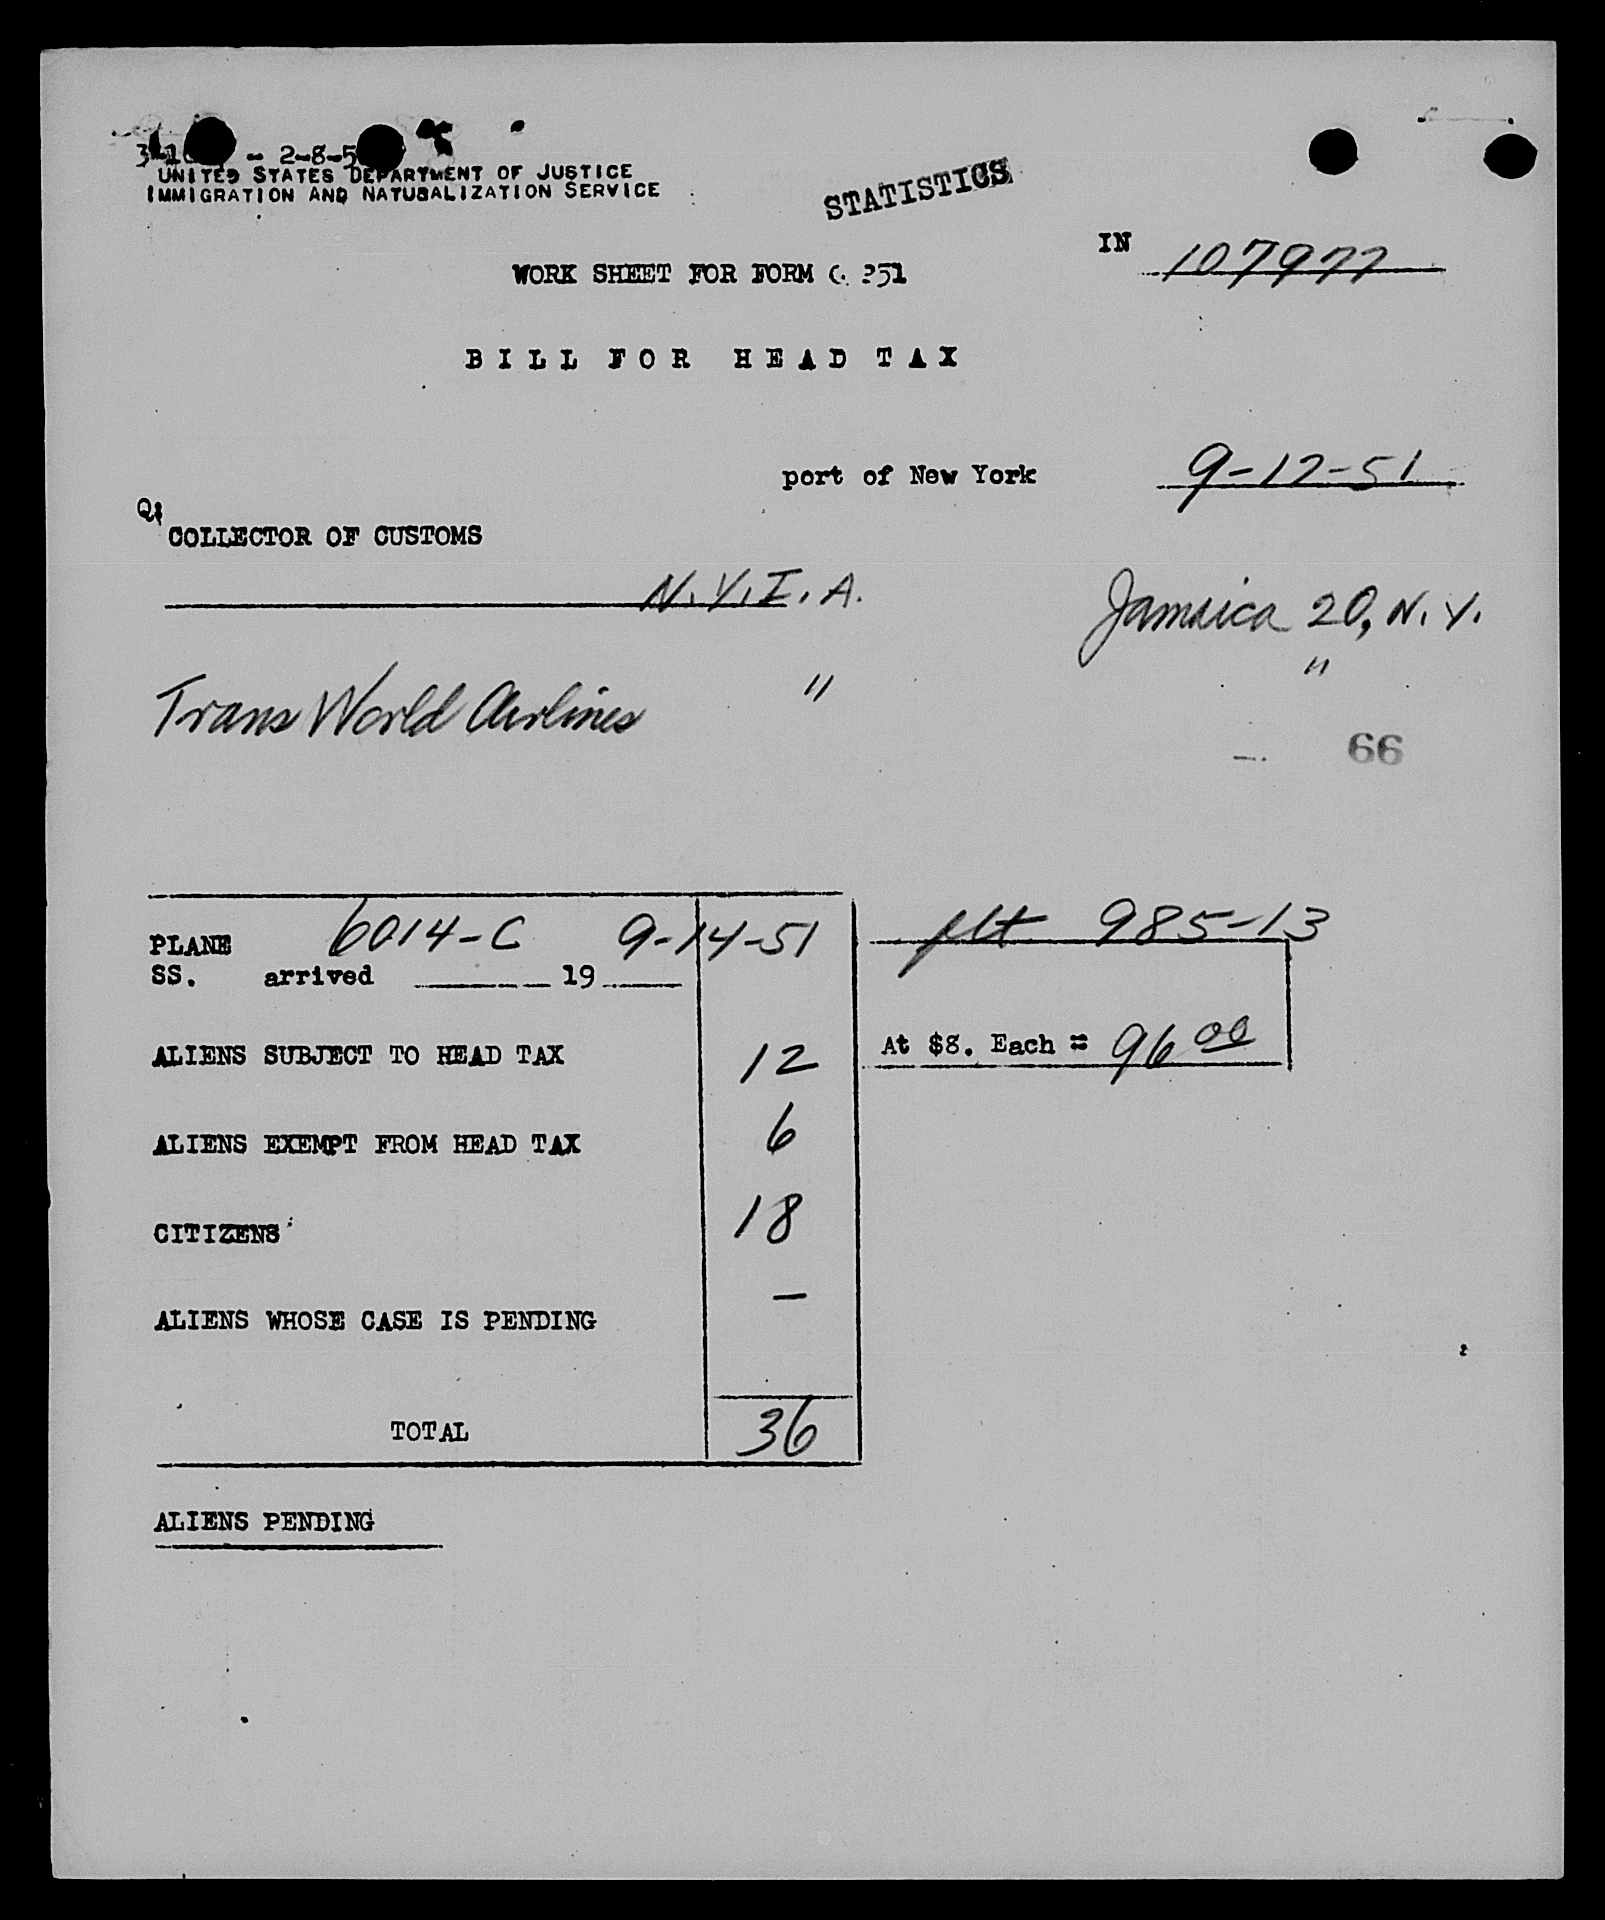 - 2-8-5
UNITED STATES DEPARTMENT OF JUSTICE
IMMIGRATION AND NATURALIZATION SERVICE
STATISTICS
IN 107977
WORK SHEET FOR FORM 351
BILL FOR HEAD TAX
port of New York 9-17-51
COLLECTOR OF CUSTOMS
N.Y.I.A. Jamaica 20, N.Y.
Trans World Airlines " "
66
PLANE 6014-C 9-14-51 flt 985-13
SS. arrived 19
ALIENS SUBJECT TO HEAD TAX 12 At $8. Each = 96 00
ALIENS EXEMPT FROM HEAD TAX 6
CITIZENS 18
ALIENS WHOSE CASE IS PENDING —
TOTAL 36
ALIENS PENDING